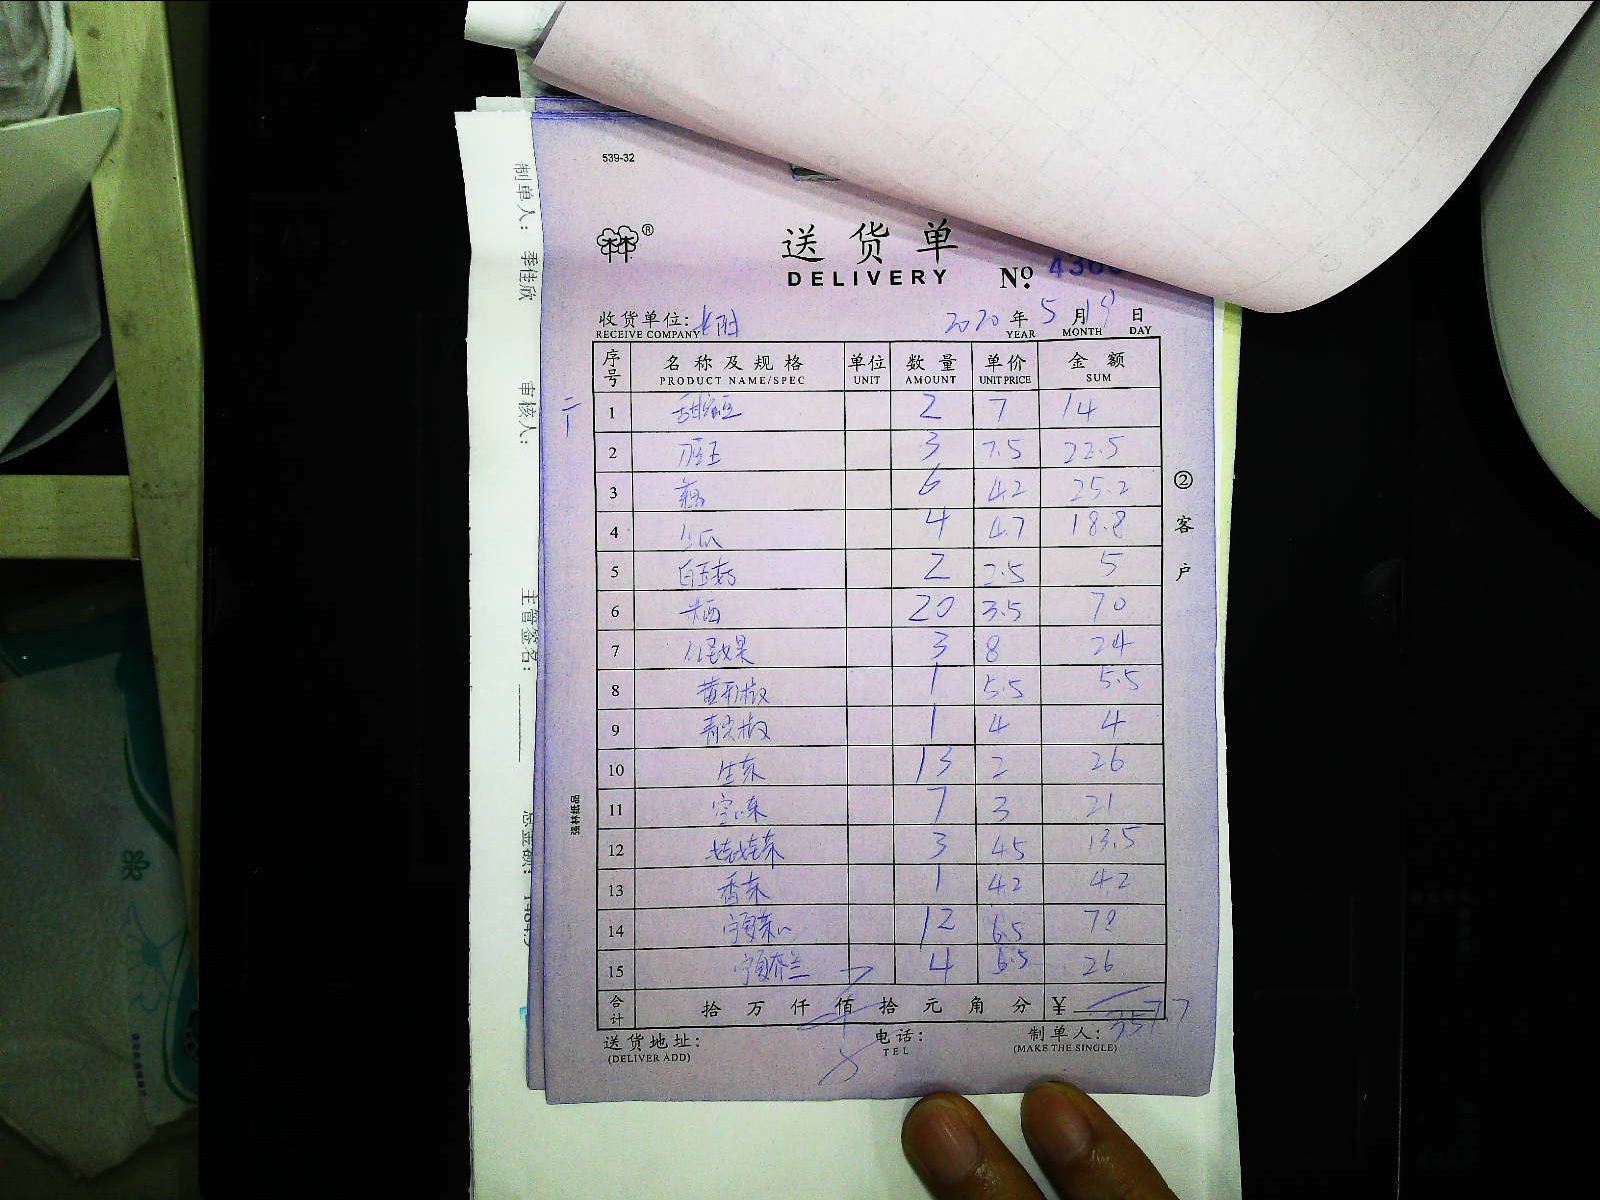 539-32
®
送货单
DELIVERY No. 
收货单位:
RECEIVE COMPANY
2020 年 5 月 19 日
YEAR MONTH DAY
序号 名称及规格 单位 数量 单价 金额
PRODUCT NAME/SPEC UNIT AMOUNT UNIT PRICE SUM
1 2 7 14
2 3 7.5 22.5
3 藕 6 4.2 25.2
4 4 4.7 18.8
5 白玉菇 2 2.5 5
6 米酒 20 3.5 70
7 3 8 24
8 黄形椒 1 5.5 5.5
9 青尖椒 1 4 4
10 生菜 13 2 26
11 空心菜 7 3 21
12 娃娃菜 3 4.5 13.5
13 香菜 1 4.2 4.2
14 宁夏菜心 12 6.5 78
15 宁夏芥兰 4 6.5 26
合计 拾 万 仟 佰 拾 元 角 分 ¥ 357.7
送货地址: 电话: 制单人:
(DELIVER ADD) TEL (MAKE THE SINGLE)
②客户
强林纸品
制单人: 李佳欣
审核人:
主管签名:
总金额: